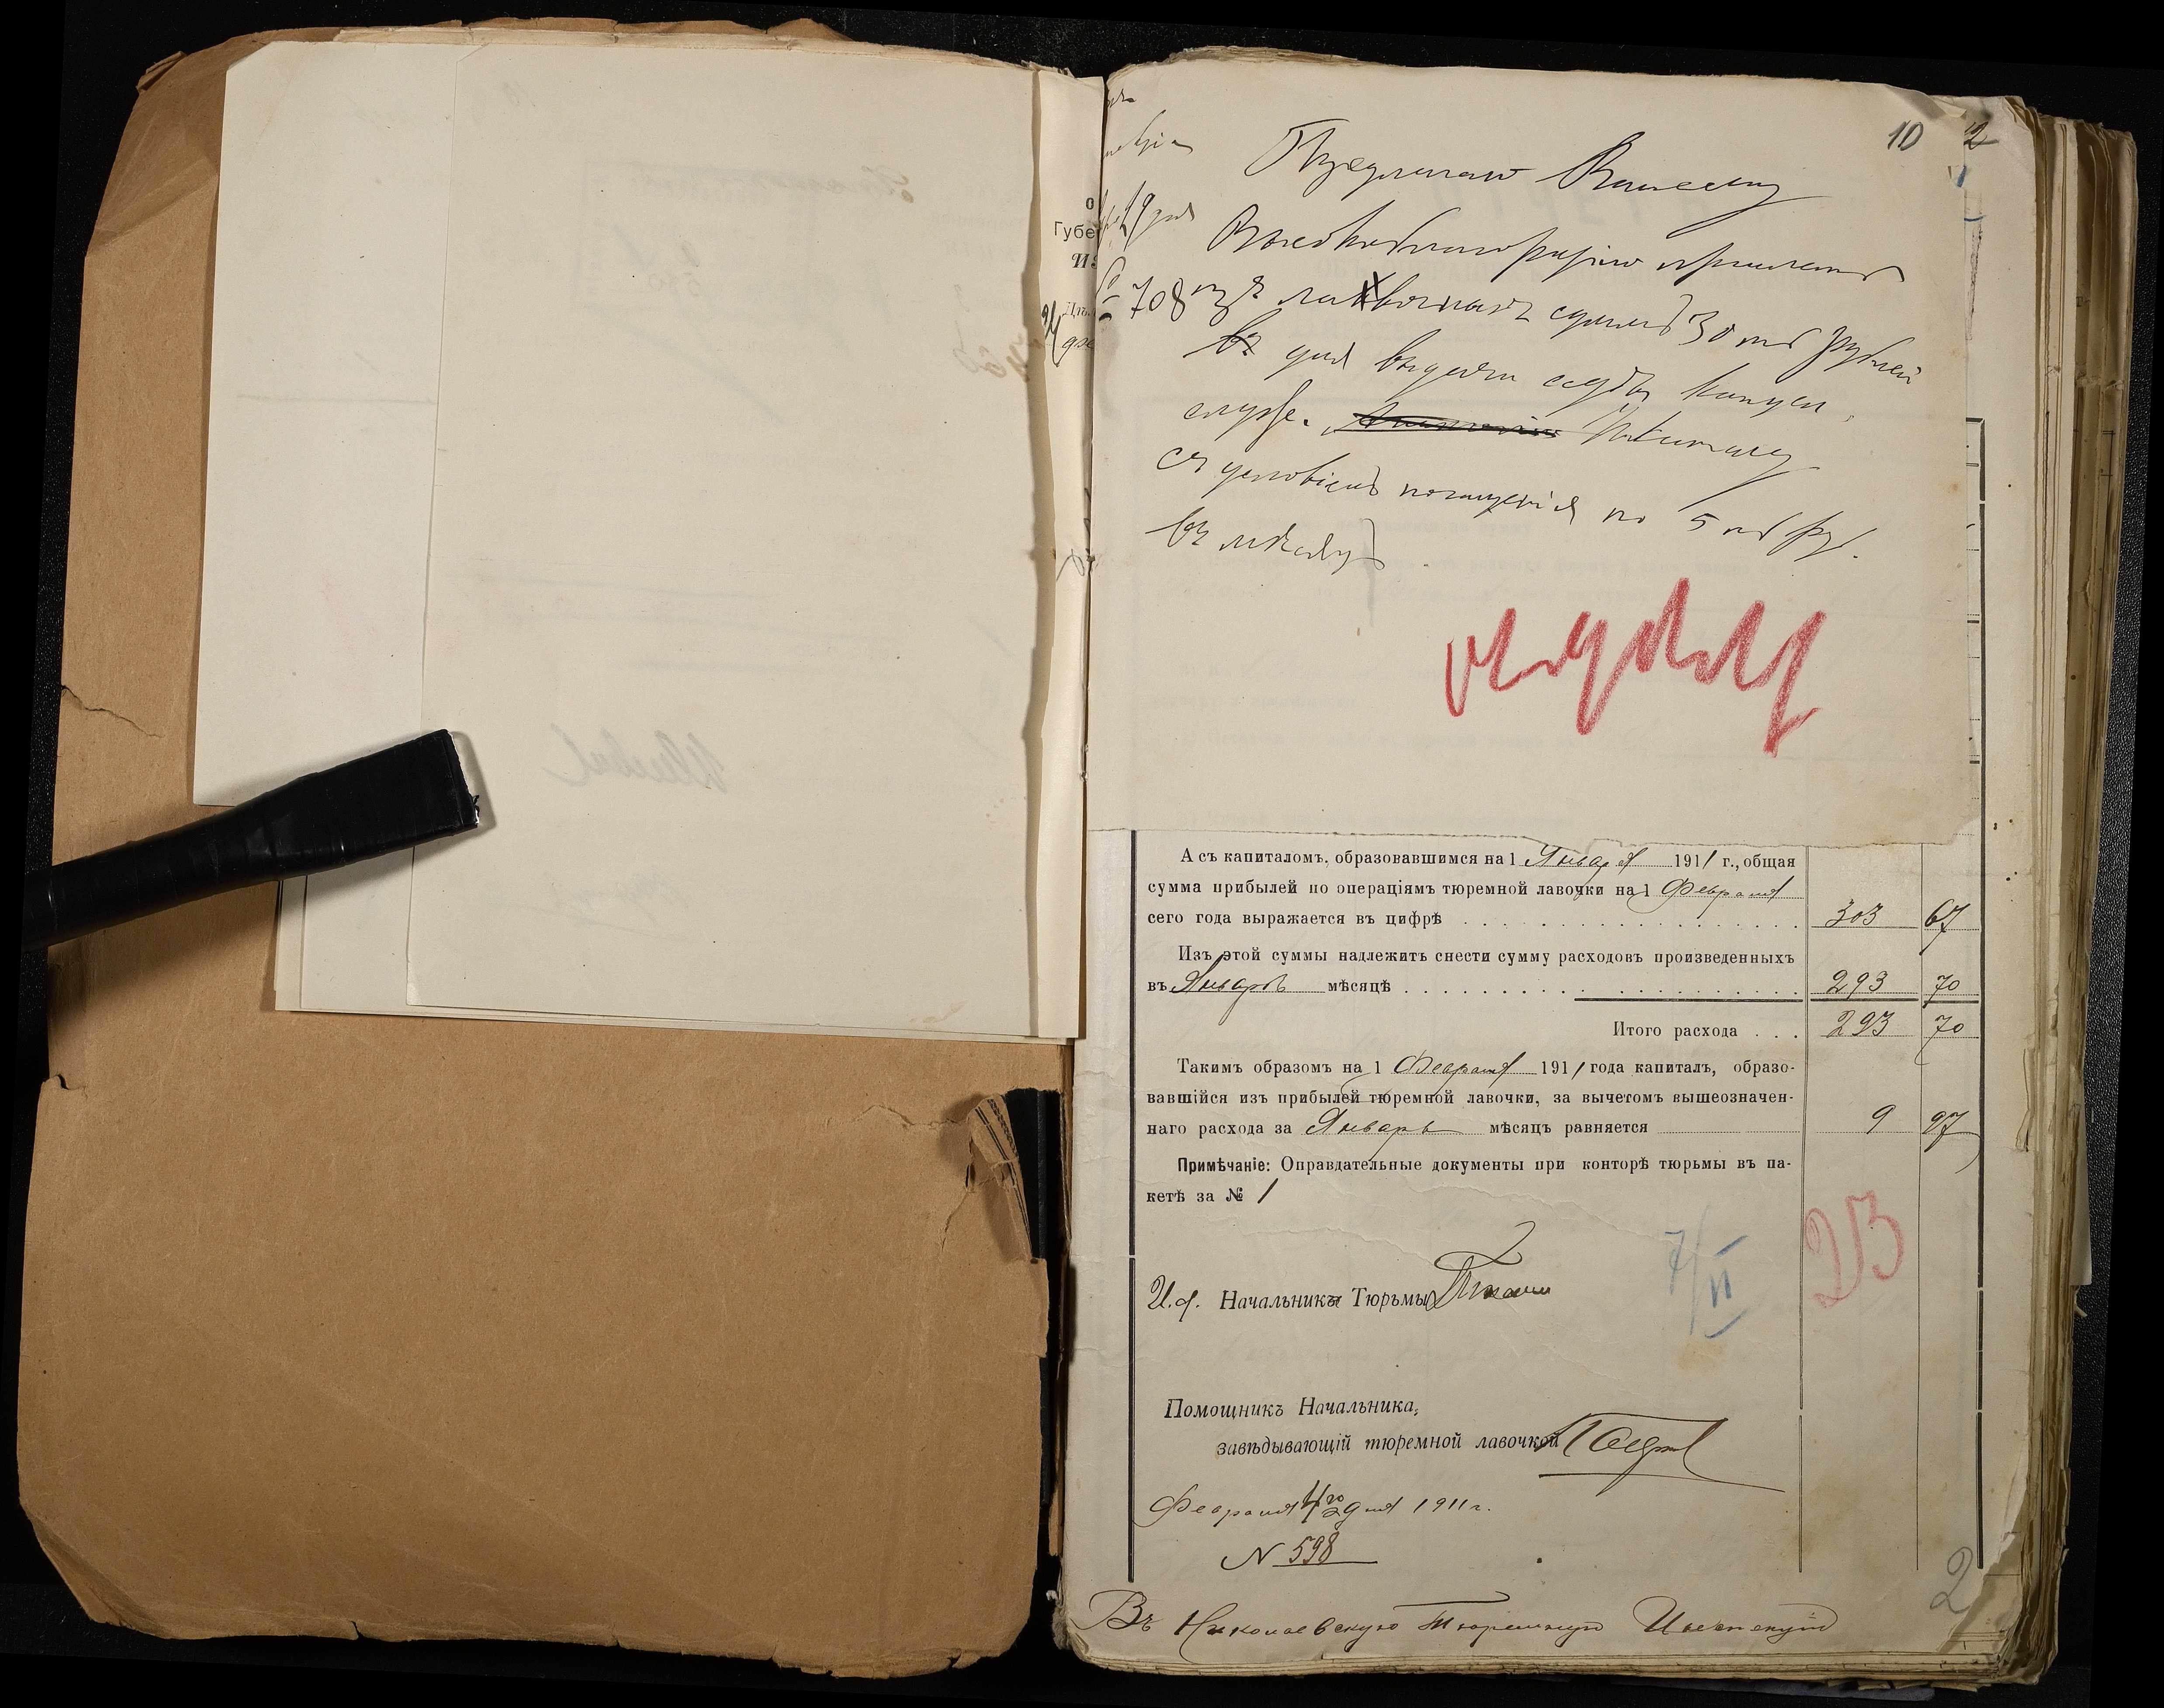 10 2
Предлагаю Вашему
Высокоблагородію прислать
708 изъ лавочныхъ суммъ 30 ть рублей
для выдачи ссуды канцел.
служ. Никитину
съ условіемъ погашенія по 5 ть руб.
въ мѣсяцъ
О
Губе
А съ капиталомъ, образовавшимся на 1 Января 1911 г., общая
сумма прибылей по операціямъ тюремной лавочки на 1 Февраля
сего года выражается въ цифрѣ 303 67
Изъ этой суммы надлежитъ снести сумму расходовъ произведенныхъ
въ Январѣ мѣсяцѣ 293 70
Итого расхода 293 70
Такимъ образомъ на 1 Февраля 1911 года капиталъ, образо-
вавшійся изъ прибылей тюремной лавочки, за вычетомъ вышеозначен-
наго расхода за Январь мѣсяцъ равняется 9 97
Примѣчаніе: Оправдательные документы при конторѣ тюрьмы въ па-
кетѣ за № 1
7/II
И.д. Начальника Тюрьмы
Помощникъ Начальника,
завѣдывающій тюремной лавочкой
Февраля 4го дня 1911 г.
N 598
2
Въ Николаевскую Тюремную Инспекцію